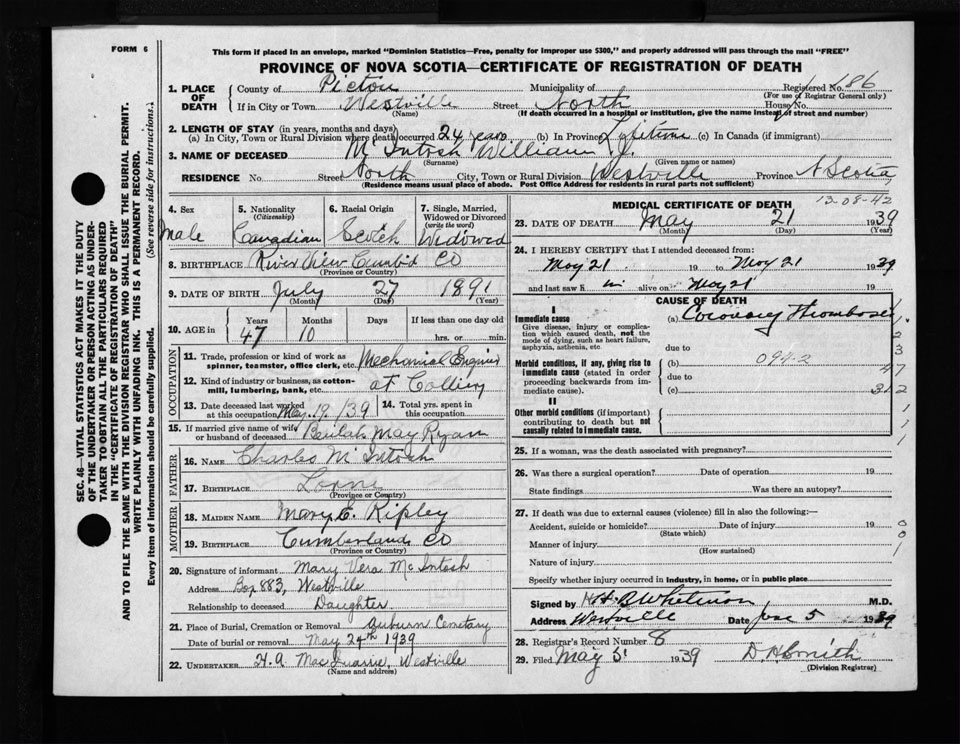 FORM 6
This form if placed in an envelope, marked "Dominion Statistics—Free, penalty for improper use $300," and properly addressed will pass through the mail "FREE"
PROVINCE OF NOVA SCOTIA—CERTIFICATE OF REGISTRATION OF DEATH
SEC. 46—VITAL STATISTICS ACT MAKES IT THE DUTY
OF THE UNDERTAKER OR PERSON ACTING AS UNDER-
TAKER TO OBTAIN ALL THE PARTICULARS REQUIRED
IN THE "CERTIFICATE OF REGISTRATION OF DEATH"
AND TO FILE THE SAME WITH THE DIVISION REGISTRAR WHO SHALL ISSUE THE BURIAL PERMIT.
WRITE PLAINLY WITH UNFADING INK. THIS IS A PERMANENT RECORD.
Every item of information should be carefully supplied. (See reverse side for instructions.)
1. PLACE OF DEATH
County of Pictou Municipality of Registered No. 686
(For use of Registrar General only)
If in City or Town Westville Street North House No.
(Name) (If death occurred in a hospital or institution, give the name instead of street and number)
2. LENGTH OF STAY (in years, months and days)
(a) In City, Town or Rural Division where death occurred 24 years (b) In Province Lifetime (c) In Canada (if immigrant)
3. NAME OF DECEASED McIntosh William J.
(Surname) (Given name or names)
RESIDENCE No. Street North City, Town or Rural Division Westville Province N Scotia
(Residence means usual place of abode. Post Office Address for residents in rural parts not sufficient)
4. Sex 5. Nationality (Citizenship) 6. Racial Origin 7. Single, Married, Widowed or Divorced (write the word)
Male Canadian Scotch Widowed
8. BIRTHPLACE River View Cumb'd Co
(Province or Country)
9. DATE OF BIRTH July 27 1891
(Month) (Day) (Year)
10. AGE in Years Months Days If less than one day old
47 10 hrs. or min.
OCCUPATION
11. Trade, profession or kind of work as spinner, teamster, office clerk, etc. Mechanical Engineer
12. Kind of industry or business, as cotton-mill, lumbering, bank, etc. at Colliery
13. Date deceased last worked at this occupation May 19/39 14. Total yrs. spent in this occupation
15. If married give name of wife or husband of deceased Beulah May Ryan
FATHER
16. NAME Charles McIntosh
17. BIRTHPLACE Lorne
(Province or Country)
MOTHER
18. MAIDEN NAME Mary E. Ripley
19. BIRTHPLACE Cumberland Co
(Province or Country)
20. Signature of informant Mary Vera McIntosh
Address Box 883, Westville
Relationship to deceased Daughter
21. Place of Burial, Cremation or Removal Auburn Cemetary
Date of burial or removal May 24th 1939
22. UNDERTAKER H.A MacQuarrie, Westville
(Name and address)
MEDICAL CERTIFICATE OF DEATH
12-08-42
23. DATE OF DEATH May 21 1939
(Month) (Day) (Year)
24. I HEREBY CERTIFY that I attended deceased from:
May 21 19 to May 21 1939
and last saw h im alive on May 21 19
CAUSE OF DEATH
I
Immediate cause (a) Coronary Thrombosis
Give disease, injury or complication which caused death, not the mode of dying, such as heart failure, asphyxia, asthenia, etc.
due to
Morbid conditions, if any, giving rise to immediate cause (stated in order proceeding backwards from immediate cause).
(b) 094-2
due to
(c)
II
Other morbid conditions (if important) contributing to death but not causally related to immediate cause.
1
2
3
47
312
1
1
1
25. If a woman, was the death associated with pregnancy?
26. Was there a surgical operation? Date of operation 19
State findings Was there an autopsy?
27. If death was due to external causes (violence) fill in also the following:—
Accident, suicide or homicide? Date of injury 19
(State which)
Manner of injury
(How sustained)
Nature of injury
Specify whether injury occurred in industry, in home, or in public place
0
0
1
Signed by M.D.
Address Westville Date June 5 1939
28. Registrar's Record Number 8
29. Filed May 31 1939 D.H Smith
(Division Registrar)